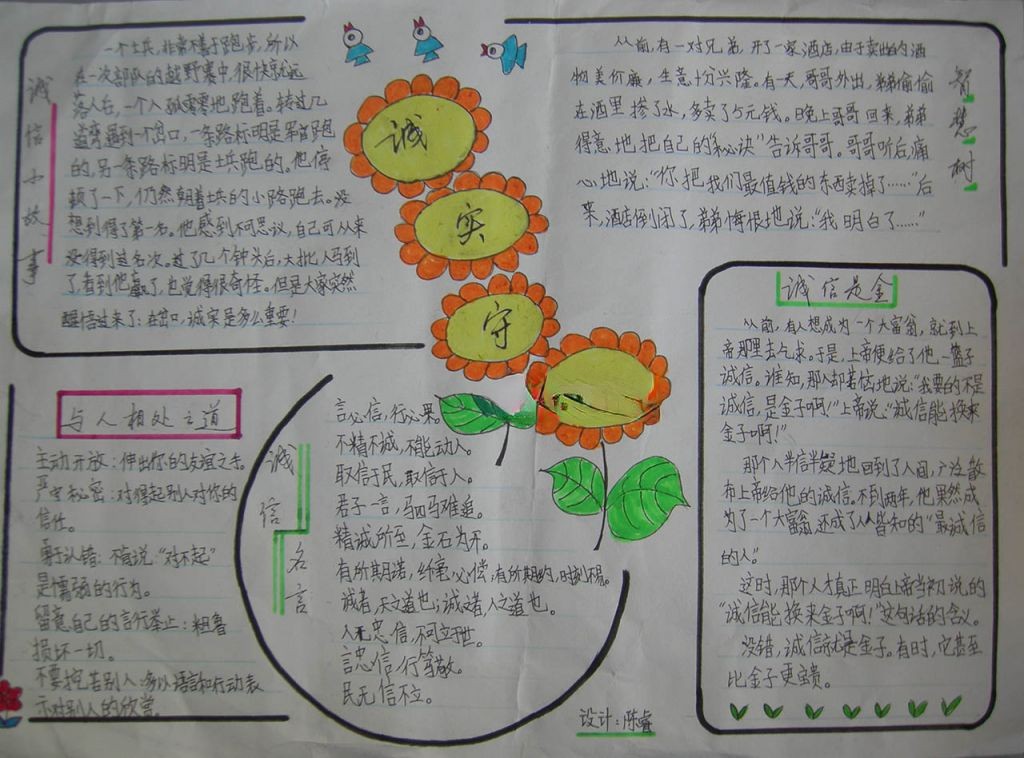 诚信小故事
一个士兵，非常不善于跑步，所以
在一次部队的越野赛中，很快就远
落人后，一个人孤零零地跑着。转过几
道弯遇到一个岔口，一条路标明是军官跑
的，另一条路标明是士兵跑的。他停
顿了一下，仍然朝着士兵的小路跑去。没
想到得了第一名。他感到不可思议，自己可从来
没得到过名次。过了几个钟头后，大批人马到
了，看到他赢了，也觉得很奇怪。但是大家突然
醒悟过来了：岔口，诚实是多么重要！
诚
实
守
智慧树
从前，有一对兄弟，开了一家酒店，由于卖出的酒
物美价廉，生意十分兴隆。有一天，哥哥外出，弟弟偷偷
在酒里掺了水，多卖了5元钱。晚上哥哥回来，弟弟
得意地把自己的“秘诀”告诉哥哥。哥哥听后痛
心地说：“你把我们最值钱的东西卖掉了……”后
来，酒店倒闭了，弟弟悔恨地说：“我明白了……”
诚信是金
从前，有人想成为一个大富翁，就到上
帝那里去乞求。于是，上帝便给了他一篮子
诚信。谁知，那人却着恼地说：“我要的不是
诚信，是金子啊！”上帝说：“诚信能换来
金子啊！”
那个人半信半疑地回到了人间，广泛散
布上帝给他的诚信，不到两年，他果然成
为了一个大富翁，还成了人人皆知的“最诚信
的人”。
这时，那个人才真正明白上帝当初说的
“诚信能换来金子啊！”这句话的含义。
没错，诚信就是金子。有时，它甚至
比金子更宝贵。
与人相处之道
主动开放：伸出你的友谊之手。
严守秘密：对得起别人对你的
信任。
勇于认错：不肯说：“对不起”
是懦弱的行为。
留意自己的言行举止：粗鲁
损坏一切。
不要挖苦别人：多以语言和行动表
示对别人的欣赏。
诚信名言
言必信，行必果
不精不诚，不能动人。
取信于民，取信于人。
君子一言，驷马难追。
精诚所至，金石为开。
有所期诺，纤毫必偿；有所期约，时刻不易。
诚者，天之道也；诚之者，人之道也。
人无忠信，不可立于世。
言忠信，行笃敬。
民无信不立。
设计：陈睿